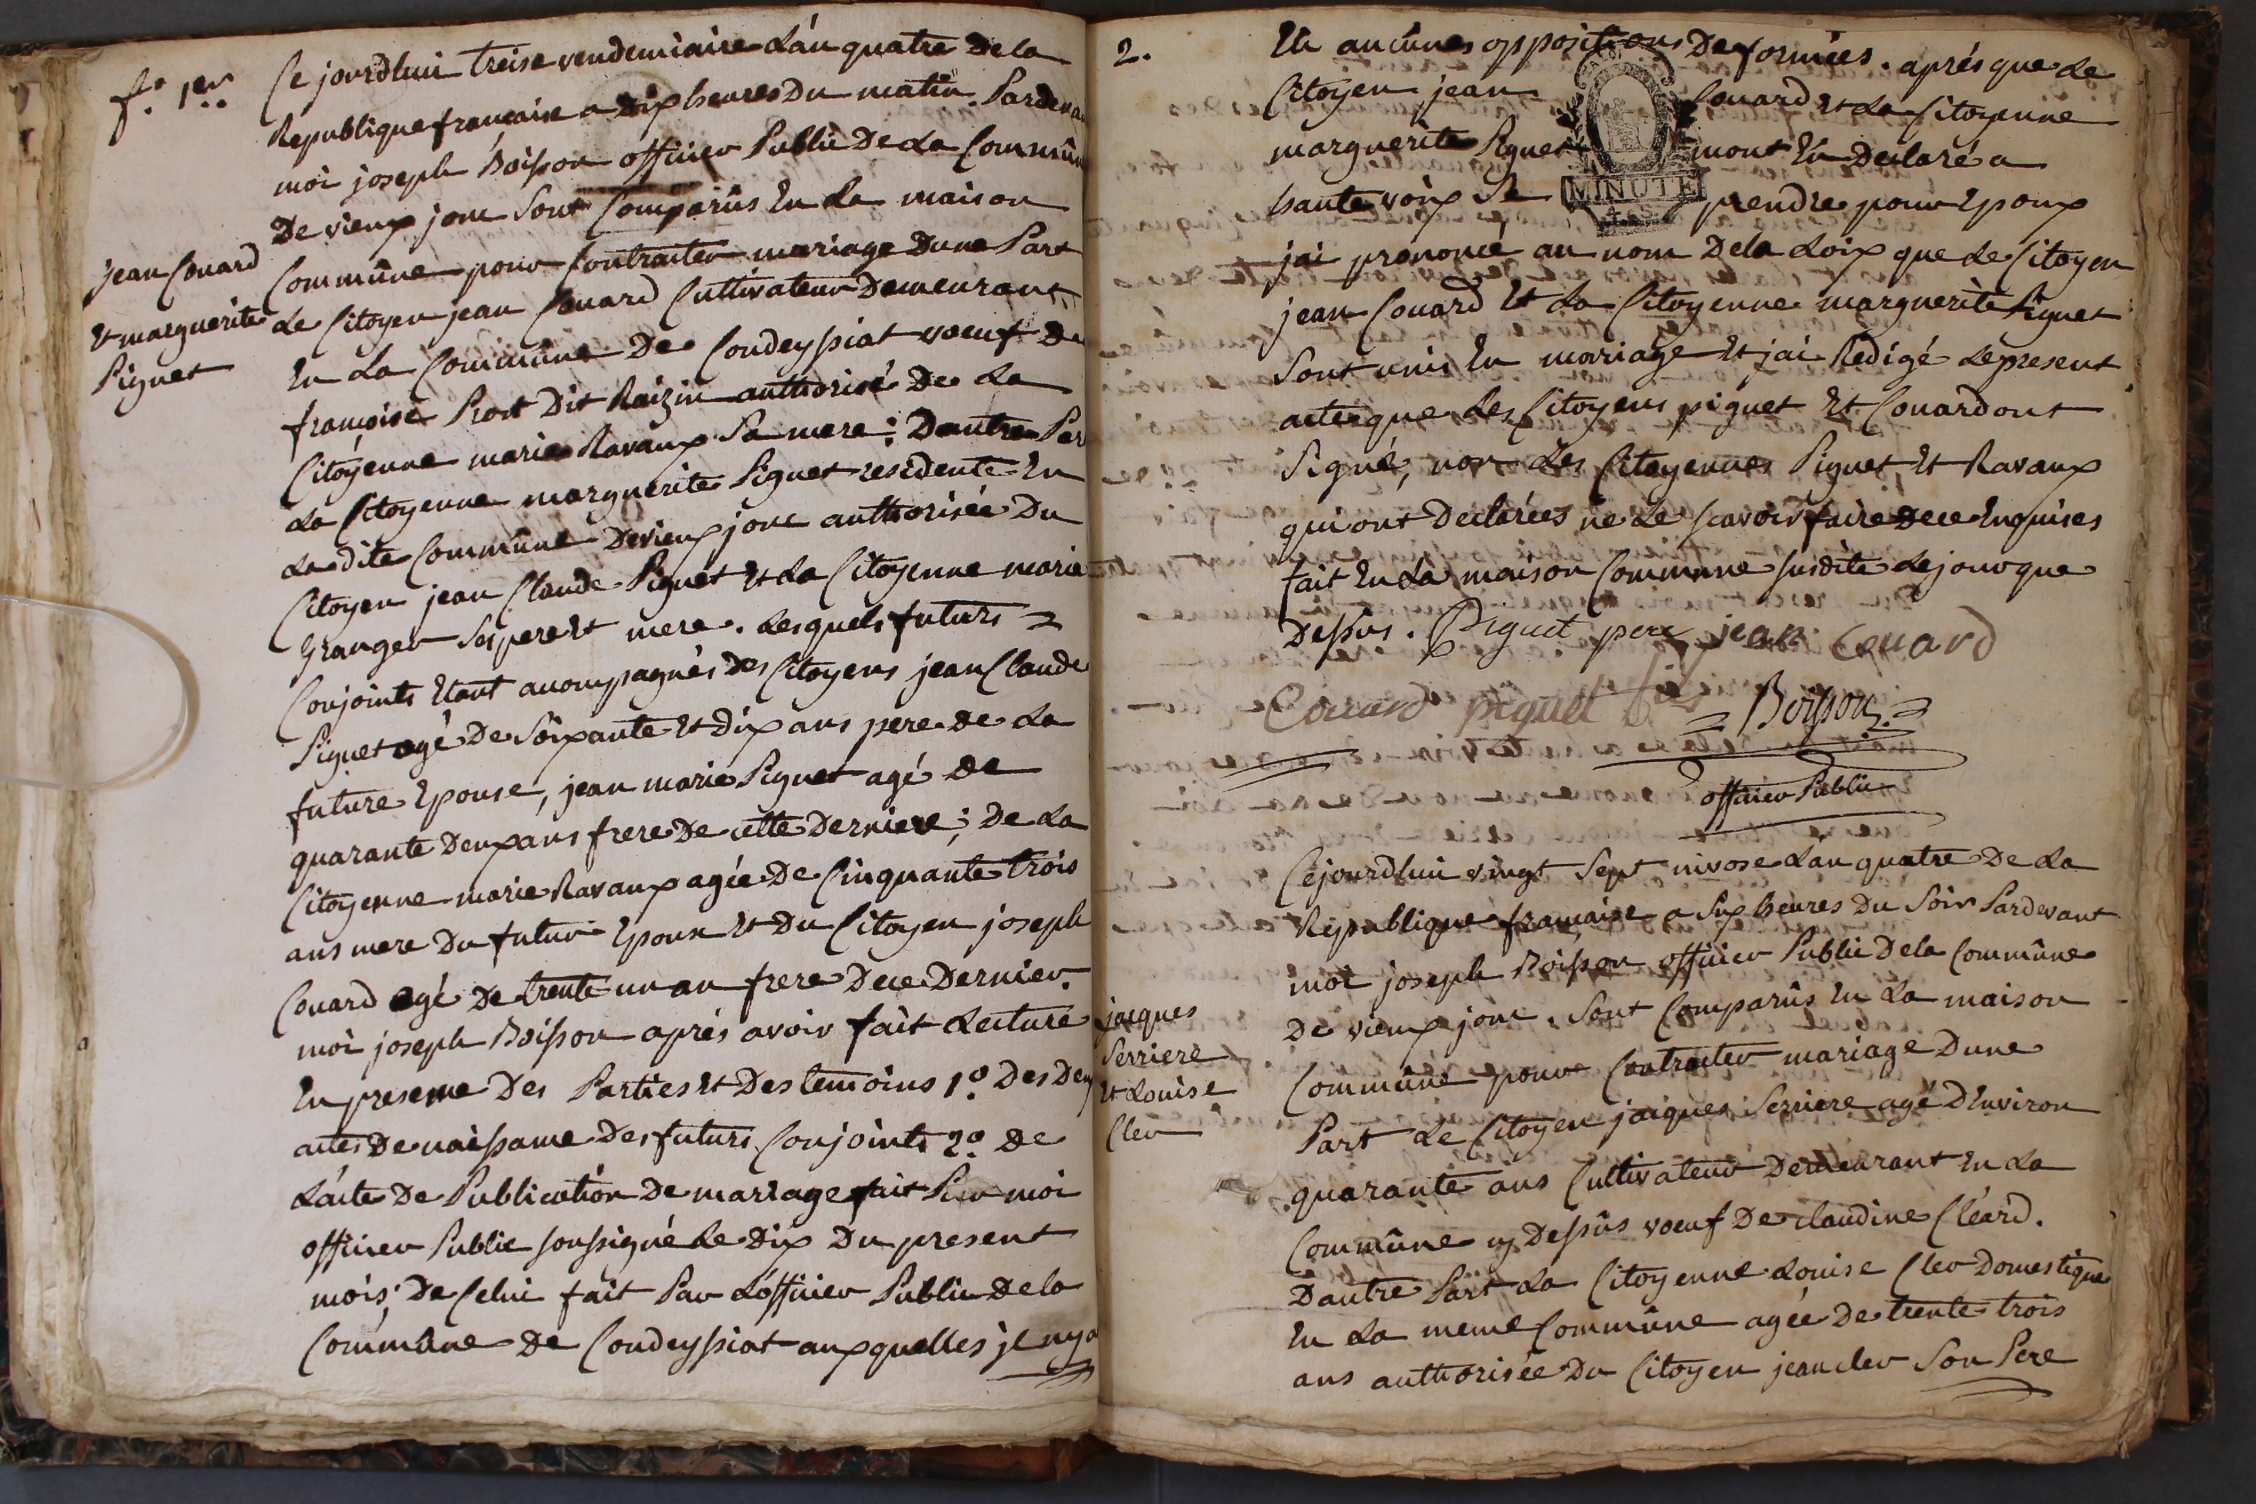 f.o 1er.
Ce jourdhui treise vendemiaire L'an quatre De la
Republique francaise a dix heures Du matin. Pardeva
moi joseph Boisson officier Public De La Commûn
De vieux jonc Sont Comparûs En La maison
Commûne pour Contracter mariage Dune Part
Le Citoyen jean Couard Cultivateur Demeurant
En La Commûne De Condeyssiat voeuf de
françoise Prost Dit Raizin authorisé De La
Citoyenne marie Ravaux Sa mere; Dautre Par
La Citoyenne marguerite Piguet residente En
La dite Commûne De vieux jonc authorisée Du
Citoyen jean Claude Piguet Et La Citoyenne marie
Granger Ses pere Et mere. Lesquels futurs
Conjoints Etant accompagnés Des Citoyens jean Claude
Piguet agé De Soixante Et Dix ans pere De La
future Epouse, jean marie Piguet agé de
quarante Deux ans frere De cette Derniere; De La
Citoyenne marie Ravaux agée De Cinquante trois
ans mere Du futur Epoux Et Du Citoyen joseph
Couard agé De trente un an frere De ce Dernier.
moi joseph Boisson aprés avoir fait Lecture
En presence Des Parties Et Des temoins 1.o Des Deux
actes De naissance Des futurs Conjoints 2.o de
L'acte De Publication De mariage fait Par moi
officier Public soussigné Le Dix Du present
mois; De Celui fait Par L'officier Public De la
Commûne De Condeyssiat aux quelles jl ny a
jean Couard
Et marguerite
Piguet
2.
Eu aucûnes oppositions De formées. aprés que Le
Citoyen jean Couard Et La Citoyenne
marguerite Piguet mont Eu Declaré a
haute voix Se prendre pour Epoux
MINUTE
4. S.
jai prononcé au nom De La Loix que Le Citoyen
jean Couard Et La Citoyenne marguerite Piguet
Sont unis En mariage Et jai Redigé Le present
acte que Les Citoyens piguet Et Couard ont
Signé, non Les Citoyennes Piguet Et Ravaux
qui ont Declarées ne Le scavoir faire De ce Enquises
fait En La maison Commune susdite Le jour que
Dessus. Piguet pere jean Couard
Couard piguet fils Boisson
officier Public
Ce jourdhui vingt Sept nivose L'an quatre De La
Republique francaise a Six heures Du Soir Pardevant
moi joseph Boisson officier Public De la Commûne
De vieux jonc. Sont Comparûs En La maison
Commûne pour Contracter mariage Dune
Part Le Citoyen jacques Serriere agé D'Environ
quarante ans Cultivateur Demeurant En La
Commûne cy Dessus voeuf De claudine Cléard.
Dautre Part La Citoyenne Louise Cler Domestique
En La meme Commûne agée De trente trois
ans authorisée Du Citoyen jean cler Son Pere
jacques
Serriere
Et Louise
Cler